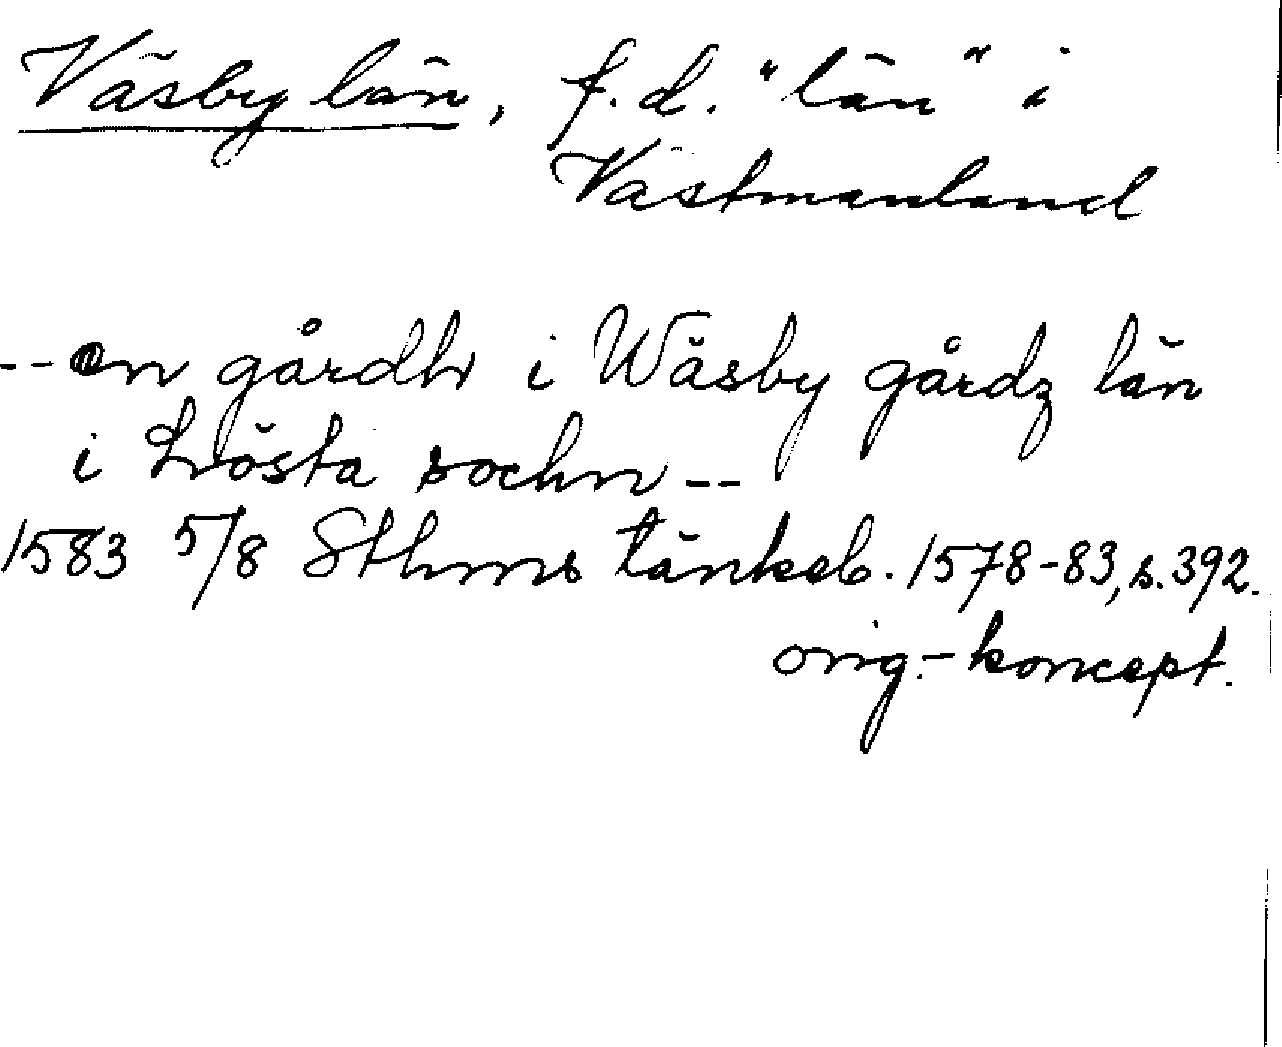 Väsby län, f.d. "län" i
Västmanland
-- en gårdh i Wäsby gårdz län
i Lrösta sochn --
1583 5/8 Sthms tänkeb. 1578-83, s. 392.
orig.- koncept.